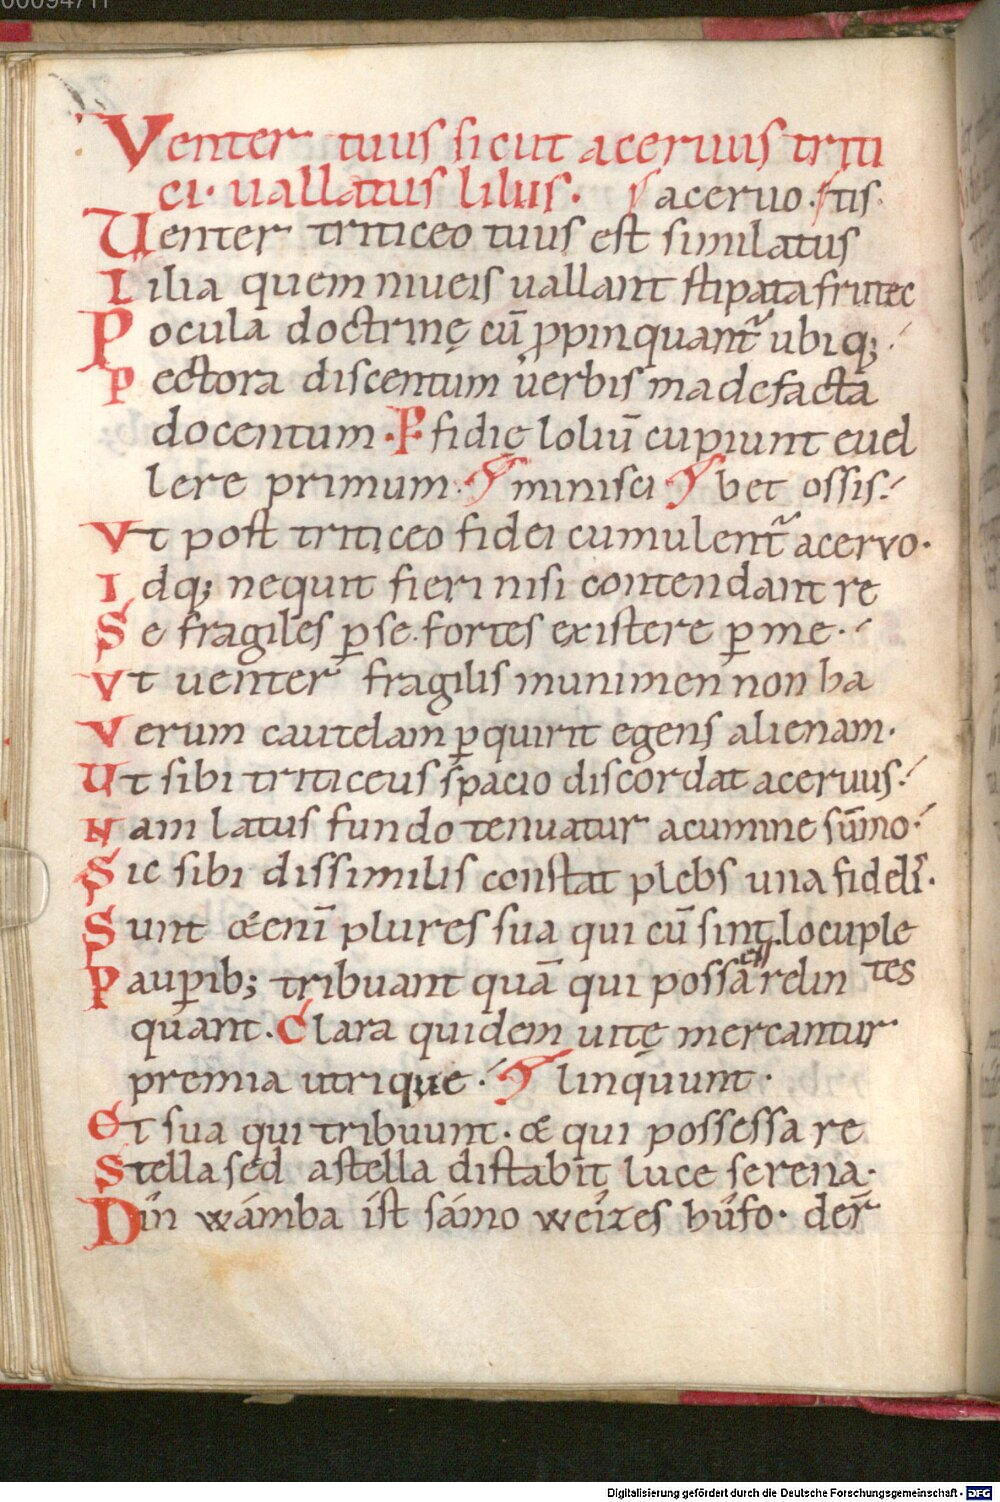 00094711
Venter tuus sicut aceruus triti
ci· uallatus liliis· acervo· tis·
Venter triticeo tuus est similatus
Lilia quem niueis uallant stipata frutec
Pocula doctrinę cū ppinquant᷑ ubiq;·
Pectora discentum uerbis madefacta
docentum· Pfidię loliū cupiunt euel
lere primum· minisci bet ossis·
Vt post triticeo fidei cumulent᷑ acervo·
Idq; nequit fieri nisi contendant re
Se fragiles p̲ se· fortes existere p̲ me·
Vt uenter fragilis munimen non ha
Verum cautelam p̲quirit egens alienam·
Vt sibi triticeus spacio discordat aceruus·
Nam latus fundo tenuatur acumine sūmo·
Sic sibi dissimilis constat plebs una fideli·
Sunt &enī plures sua qui cū sint locuple
Paup̲ib; tribuant quā qui possā relin tes
quant· Clara quidem uitę mercantur
premia utrique· linquunt·
Et sua qui tribuunt· & qui possessa re
Stella sed astella distabit luce serena·
Din wámba ist sámo weizes húfo· der
Digitalisierung gefördert durch die Deutsche Forschungsgemeinschaft - DFG